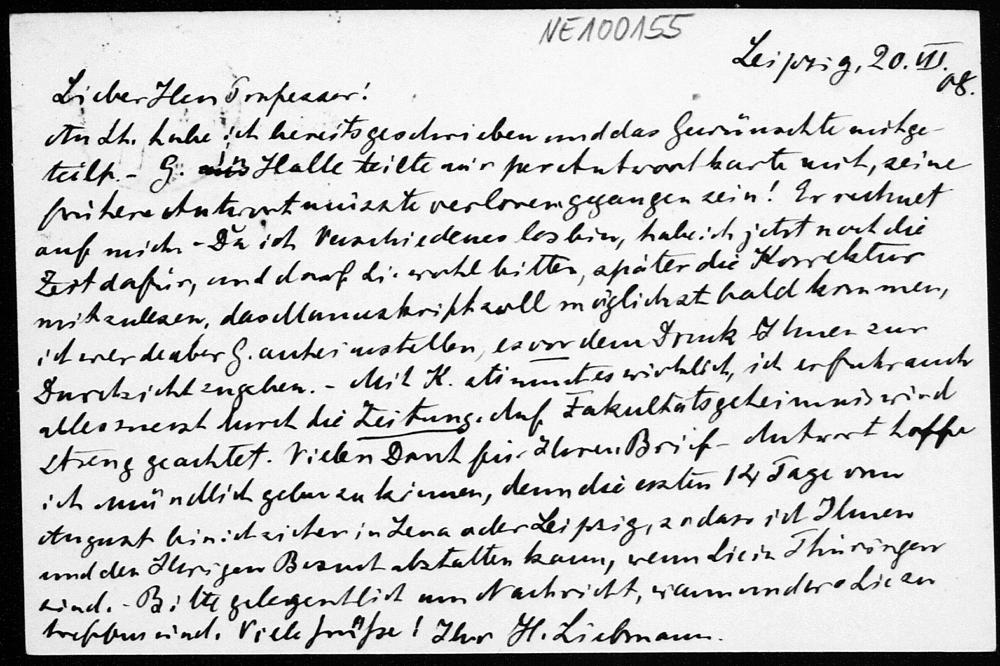 NE100155
Leipzig, 20. VII.
08.
Lieber Herr Professor!
An St. habe ich bereits geschrieben und das Gewünschte mitge-
teilt. – G. aus Halle teilte mir per Antwortkarte mit, seine
frühere Antwort müsste verloren gegangen sein! Er rechnet
auf mich. – Da ich Verschiedenes los bin, habe ich jetzt noch die
Zeit dafür, und darf Sie wohl bitten, später die Korrektur
mitzulesen, das Manuskript soll möglichst bald kommen,
ich werde aber G. anheimstellen, es vor dem Druck Ihnen zur
Durchsicht zu geben. – Mit K. stimmt es wirklich, ich erfuhr auch
alles zuerst durch die Zeitung. Auf Fakultätsgeheimnis wird
streng geachtet. Vielen Dank für Ihren Brief – Antwort hoffe
ich mündlich geben zu können, denn die ersten 14 Tage vom
August bin ich sicher in Jena oder Leipzig, sodass ich Ihnen
und den Ihrigen Besuch abstatten kann, wenn Sie in Thüringen
sind. – Bitte gelegentlich um Nachricht, wann und wo Sie zu
treffen sind. Viele Grüße! Ihr H. Liebmann.